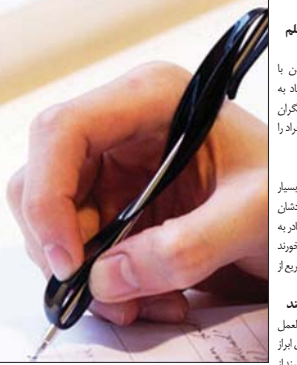 لم
ن با
اد به
گران
راد را
بسیار
دشان
ادر به
خورند
ریع از
ند
لعمل
ی ابراز